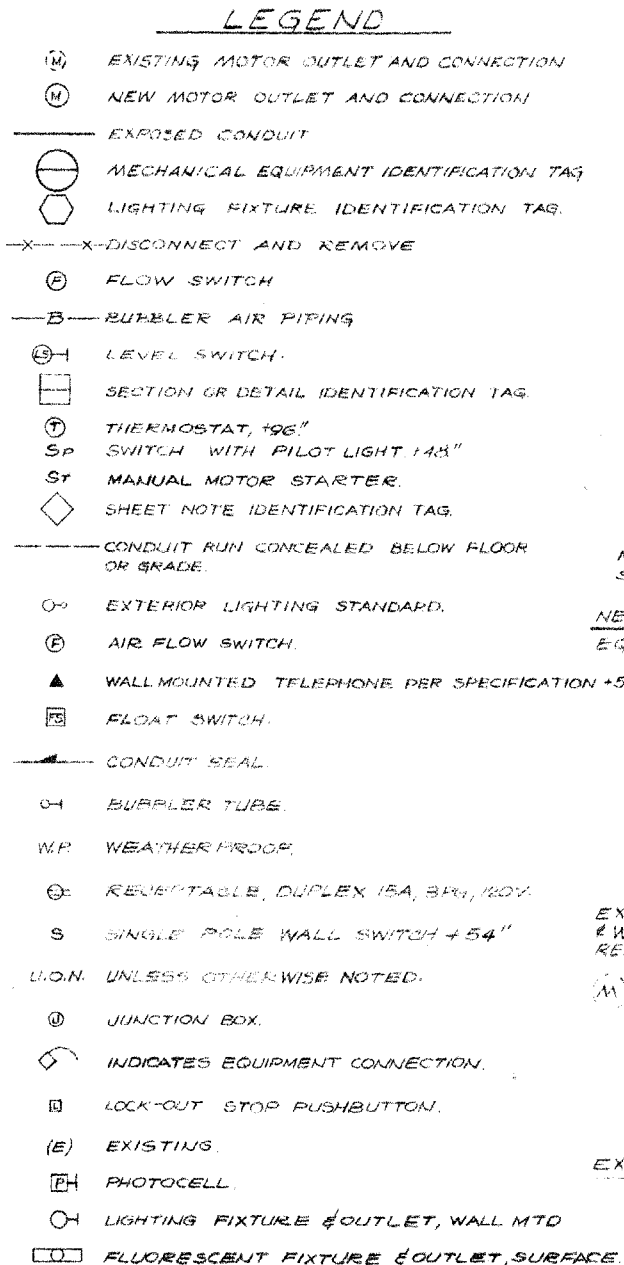 LEGEND
(M) EXISTING MOTOR OUTLET AND CONNECTION
(M) NEW MOTOR OUTLET AND CONNECTION
EXPOSED CONDUIT
MECHANICAL EQUIPMENT IDENTIFICATION TAG
LIGHTING FIXTURE IDENTIFICATION TAG.
X X DISCONNECT AND REMOVE
F FLOW SWITCH
B BUBBLER AIR PIPING
LS LEVEL SWITCH.
SECTION OR DETAIL IDENTIFICATION TAG.
T THERMOSTAT, +96"
SP SWITCH WITH PILOT LIGHT +48"
ST MANUAL MOTOR STARTER.
SHEET NOTE IDENTIFICATION TAG.
CONDUIT RUN CONCEALED BELOW FLOOR
OR GRADE.
EXTERIOR LIGHTING STANDARD.
NE
F AIR FLOW SWITCH.
EQ
WALL MOUNTED TELEPHONE PER SPECIFICATION +5
FS FLOAT SWITCH.
CONDUIT SEAL.
BUBBLER TUBE.
W.P. WEATHERPROOF.
RECEPTABLE, DUPLEX 15A, 120V.
EX
S SINGLE POLE WALL SWITCH +54"
& W
RE
U.O.N. UNLESS OTHERWISE NOTED.
M
J JUNCTION BOX.
INDICATES EQUIPMENT CONNECTION.
L LOCK-OUT STOP PUSHBUTTON.
(E) EXISTING.
EX
P PHOTOCELL.
LIGHTING FIXTURE & OUTLET, WALL MTD
FLUORESCENT FIXTURE & OUTLET, SURFACE.